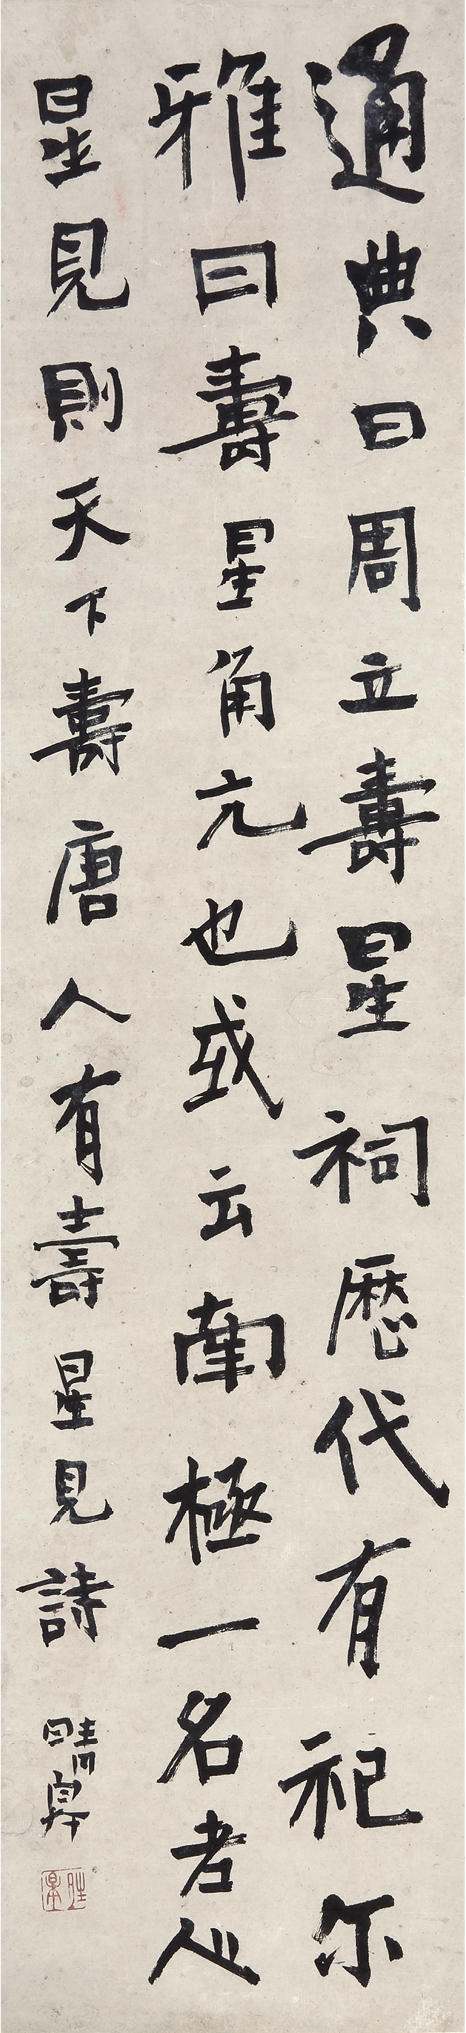 通典曰周立壽星祠歷代有祀尔
雅曰壽星角亢也或云南極一名老人
星見則天下壽唐人有壽星見詩
晴皋